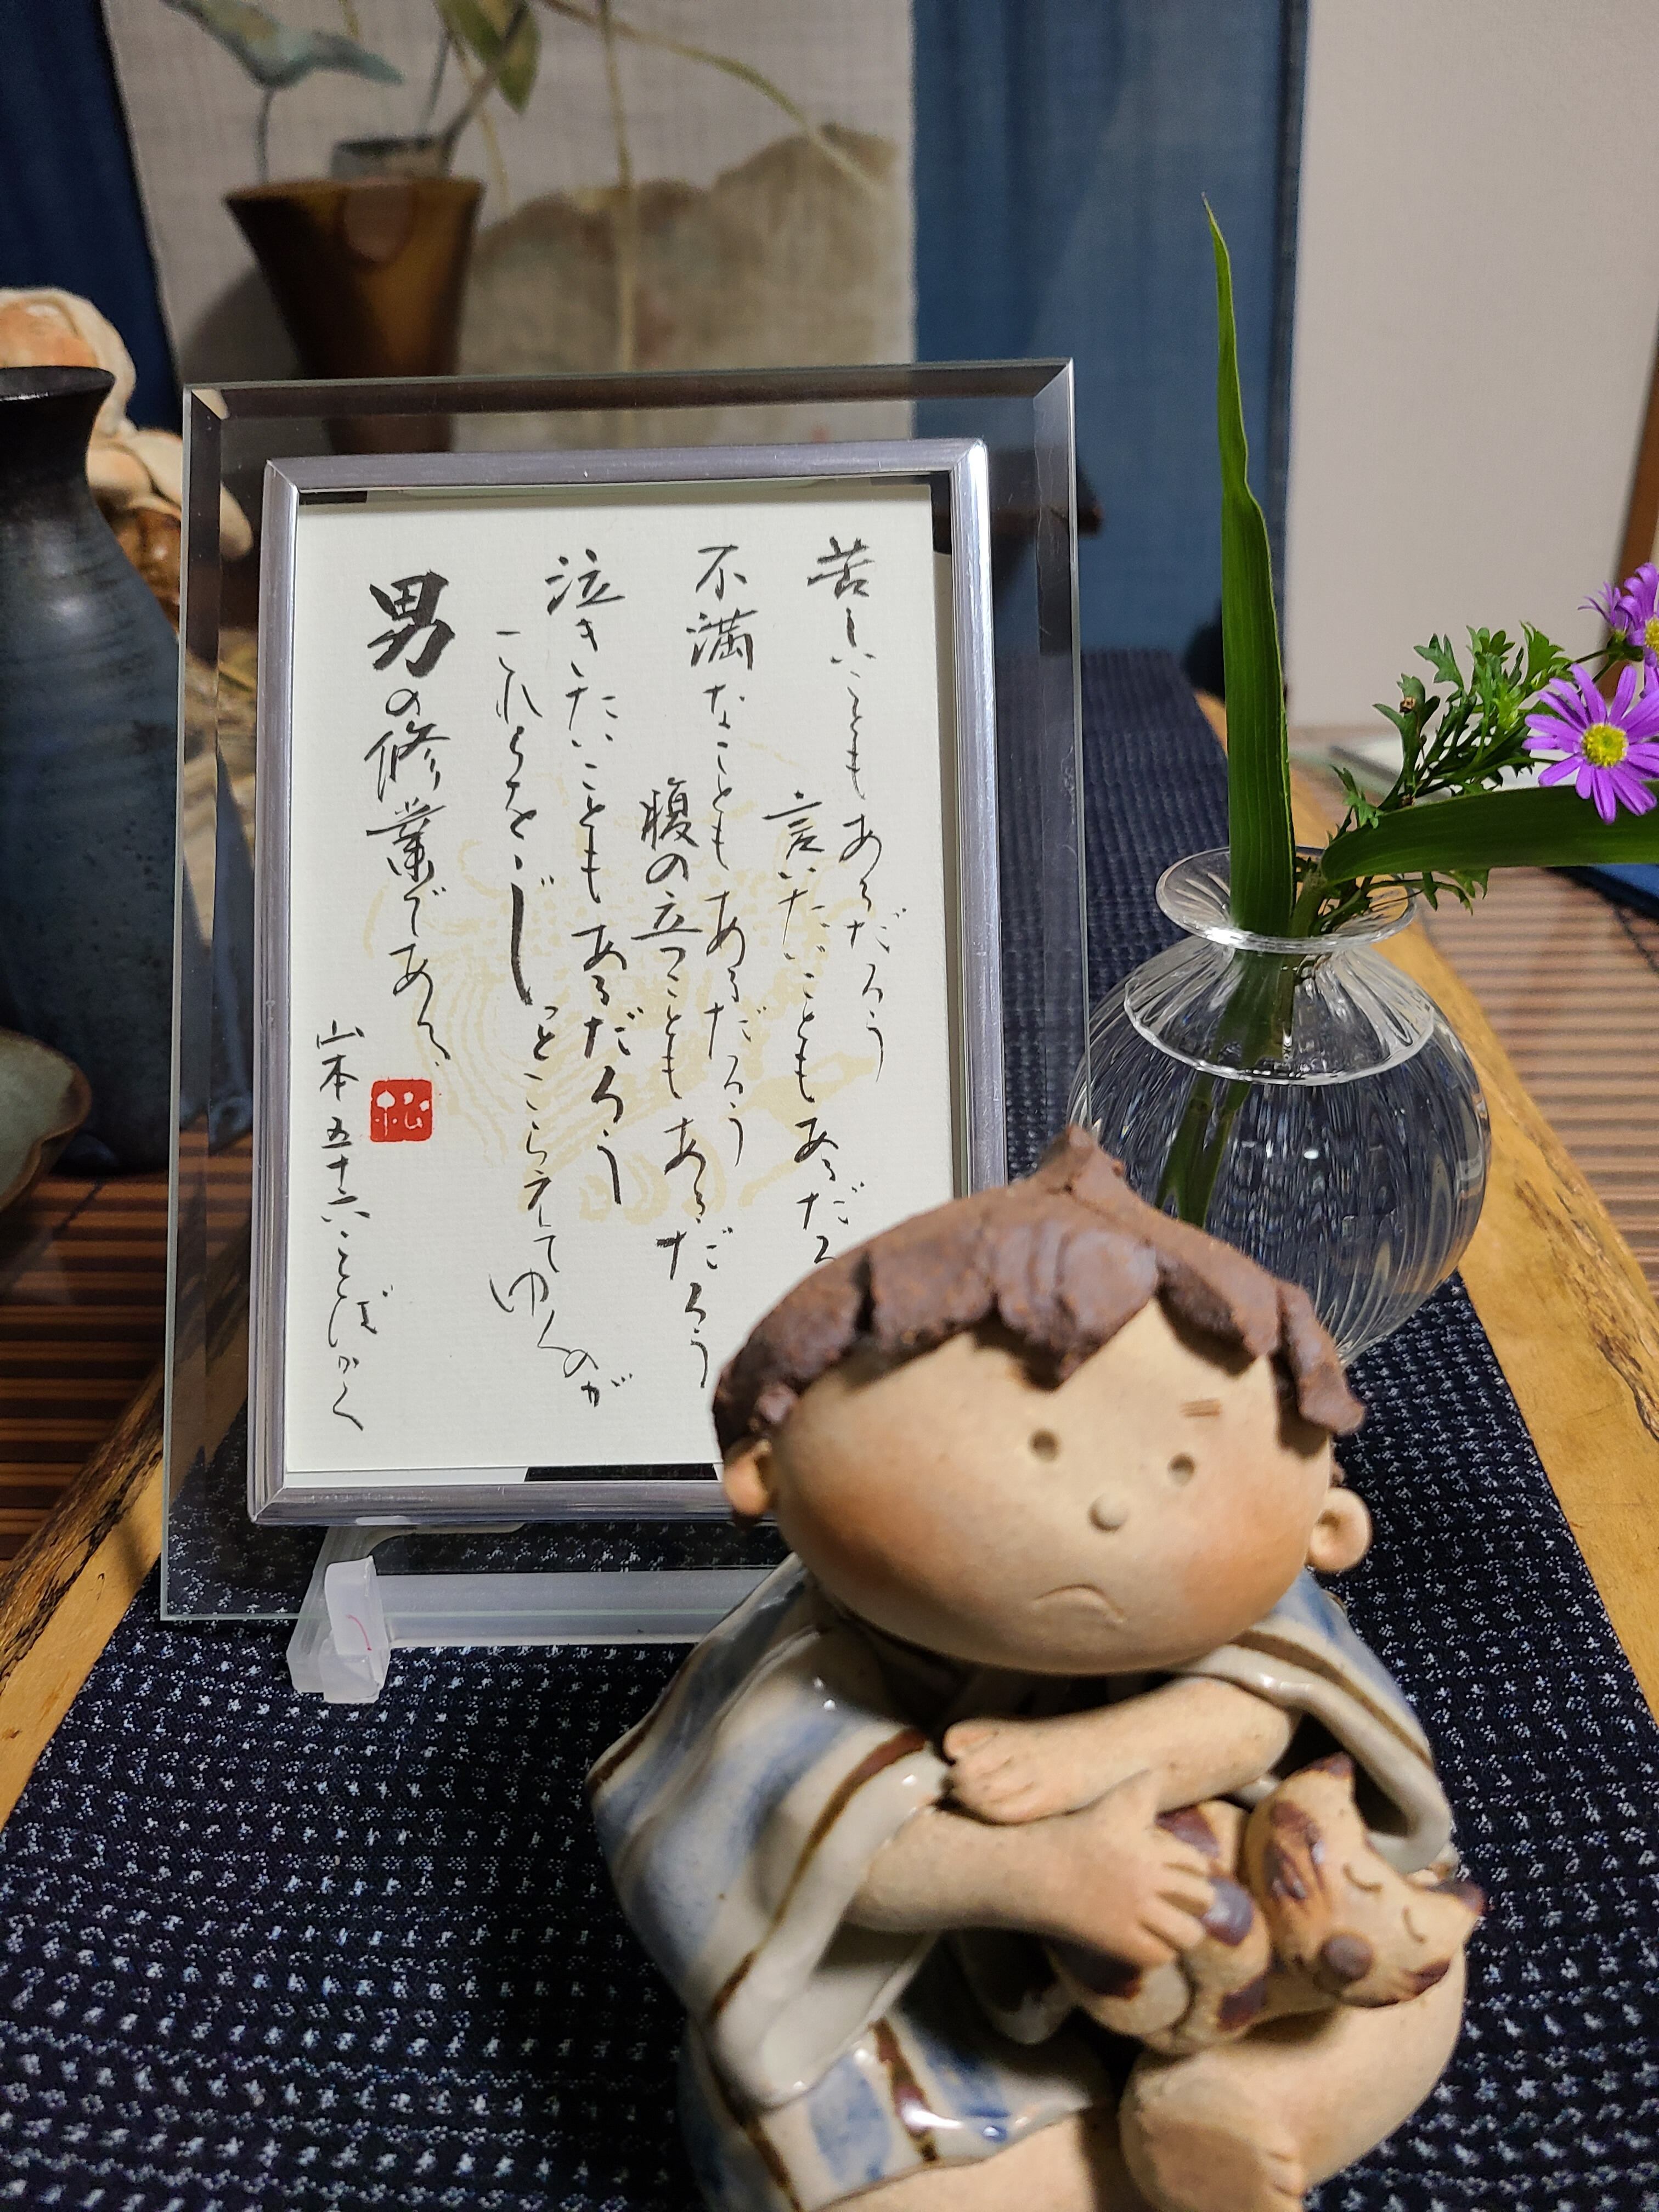 苦しいこともあるだろう
言いたいこともあるだろ
不満なこともあるだろう
腹の立つこともあるだろう
泣きたいこともあるだろう
これらをじーっとこらえてゆくのが
男の修業である
山本五十六ことばかく